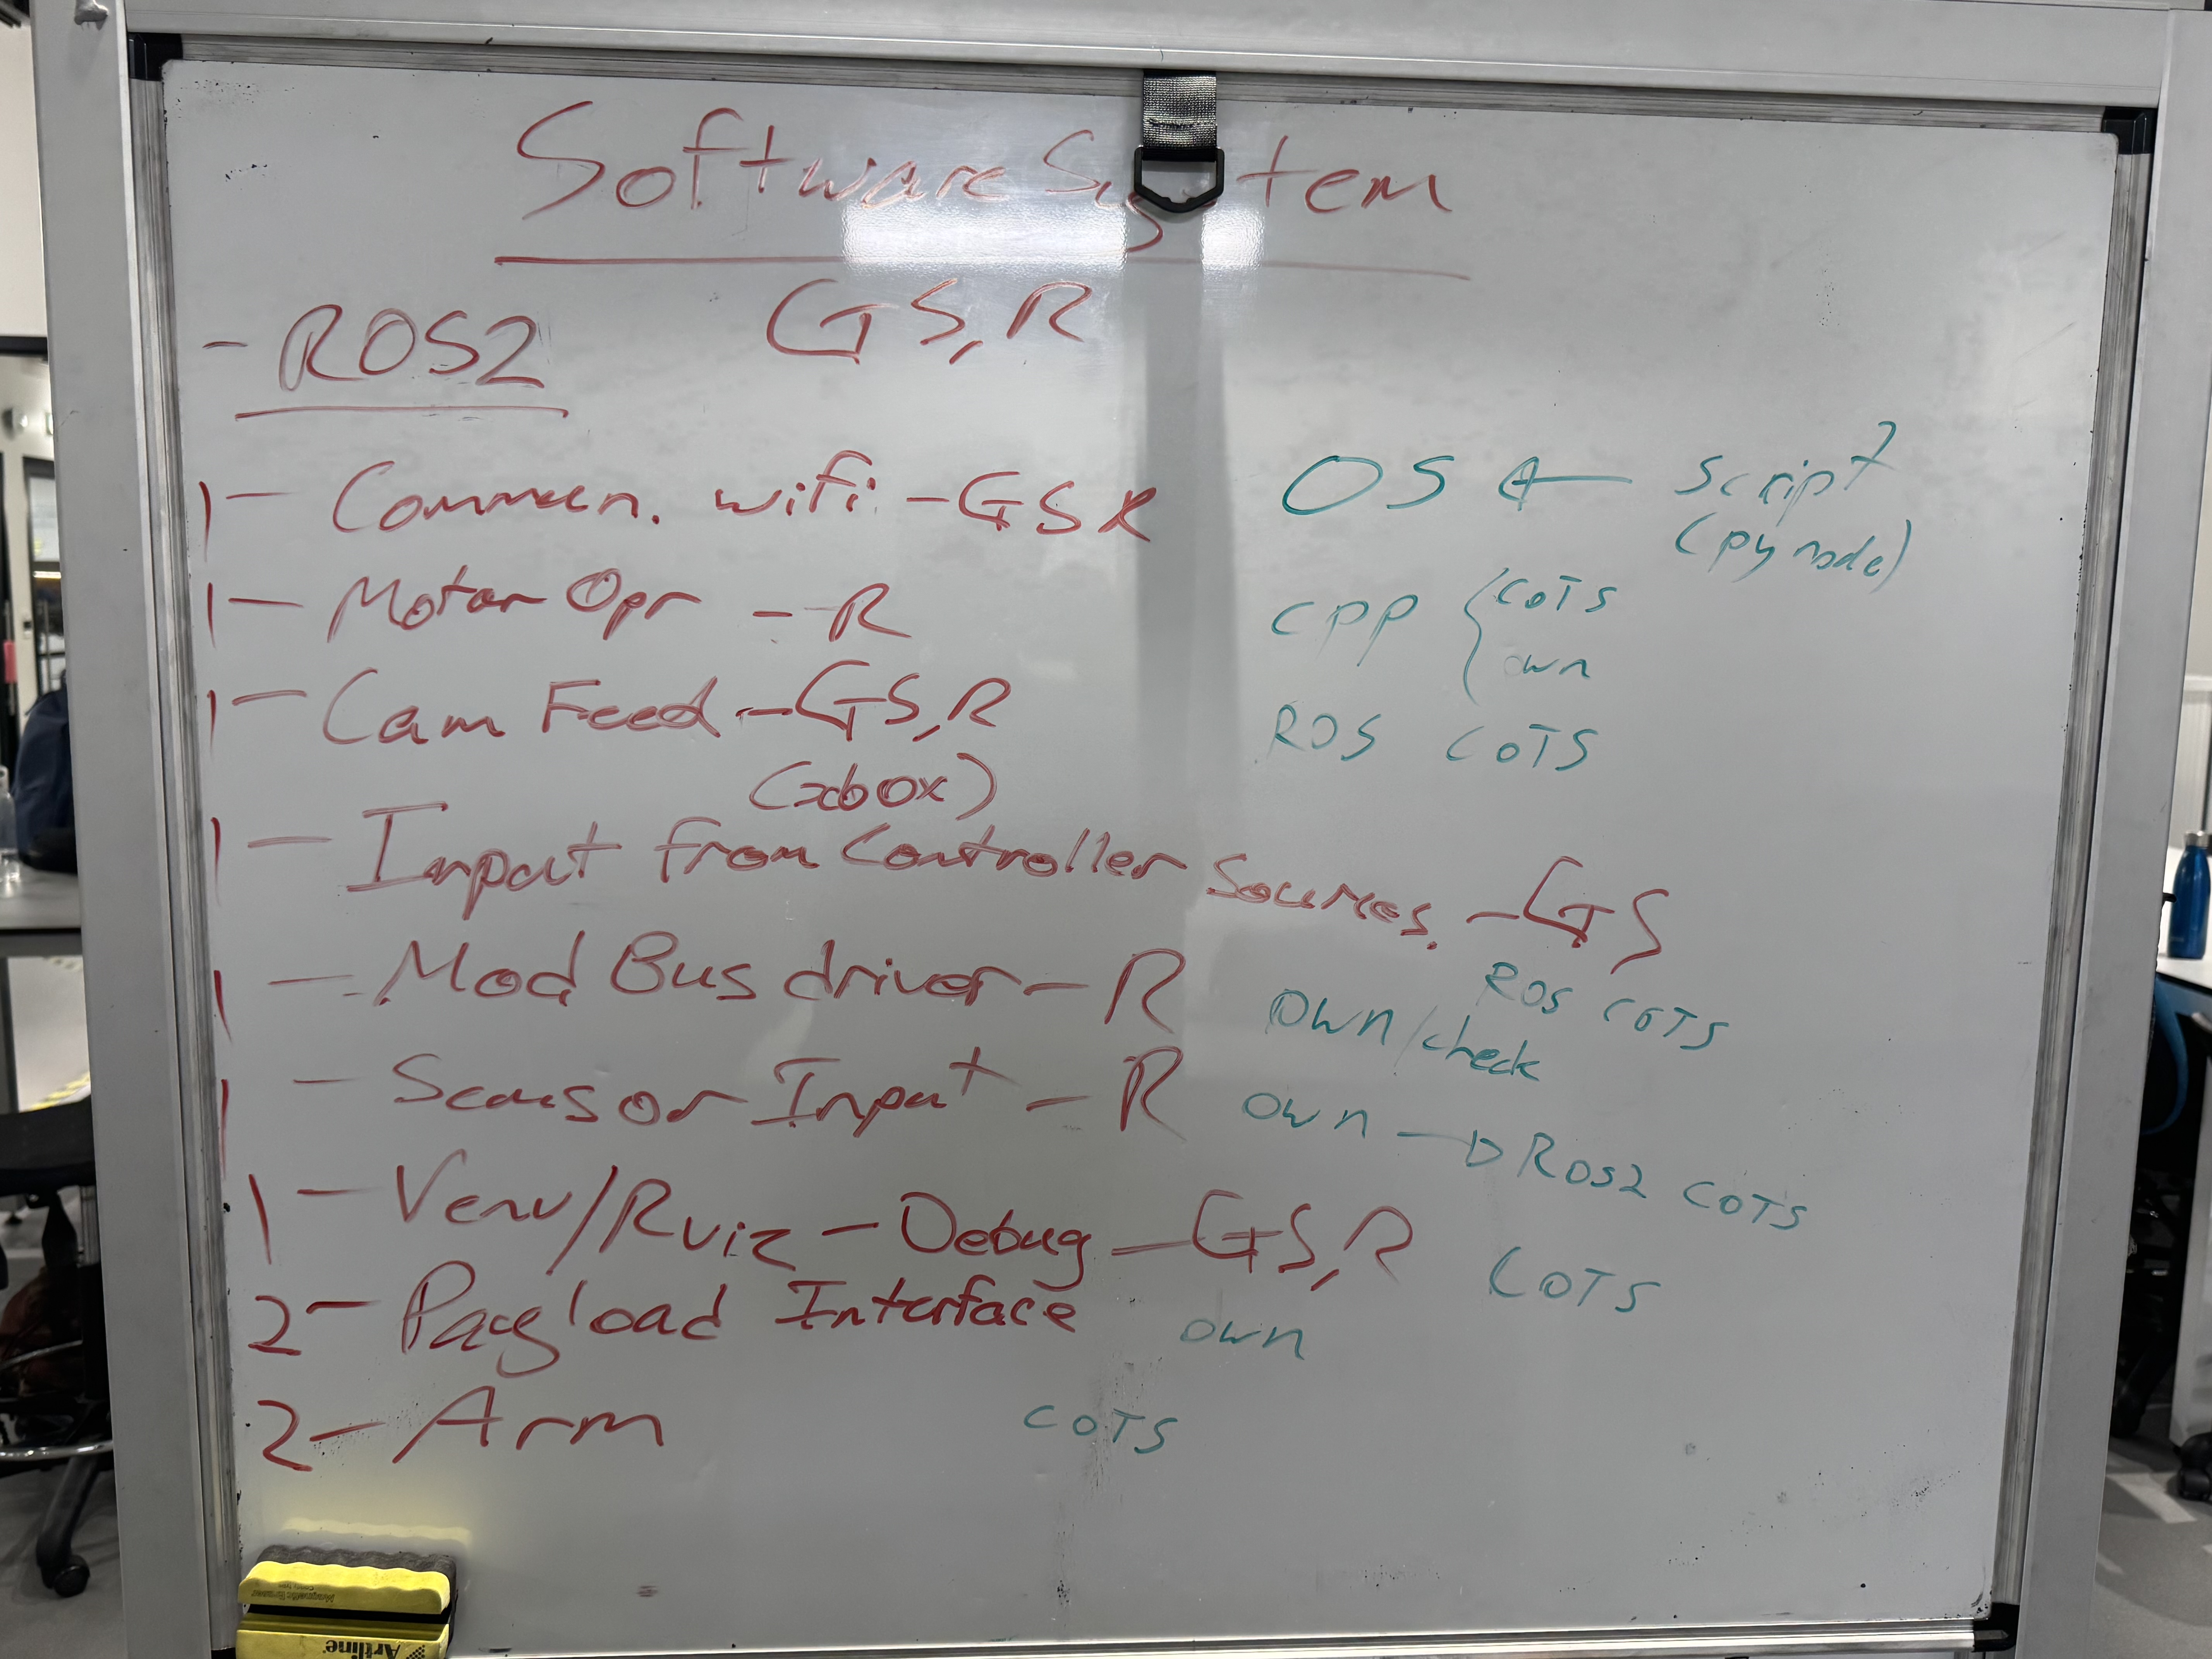 Software System
- ROS2 GS,R
1 - Commun. wifi - GSR OS ← script
(py node)
1 - Motor Opr - R CPP { COTS
own
1 - Cam Feed - GS,R ROS COTS
(xbox)
1 - Input from Controller Sources. - GS
ROS COTS
1 - Mod Bus driver - R own/check
1 - Sensor Input - R own → ROS2 COTS
1 - Venv/Rviz - Debug - GS,R COTS
2 - Payload Interface own
2 - Arm COTS
Artline